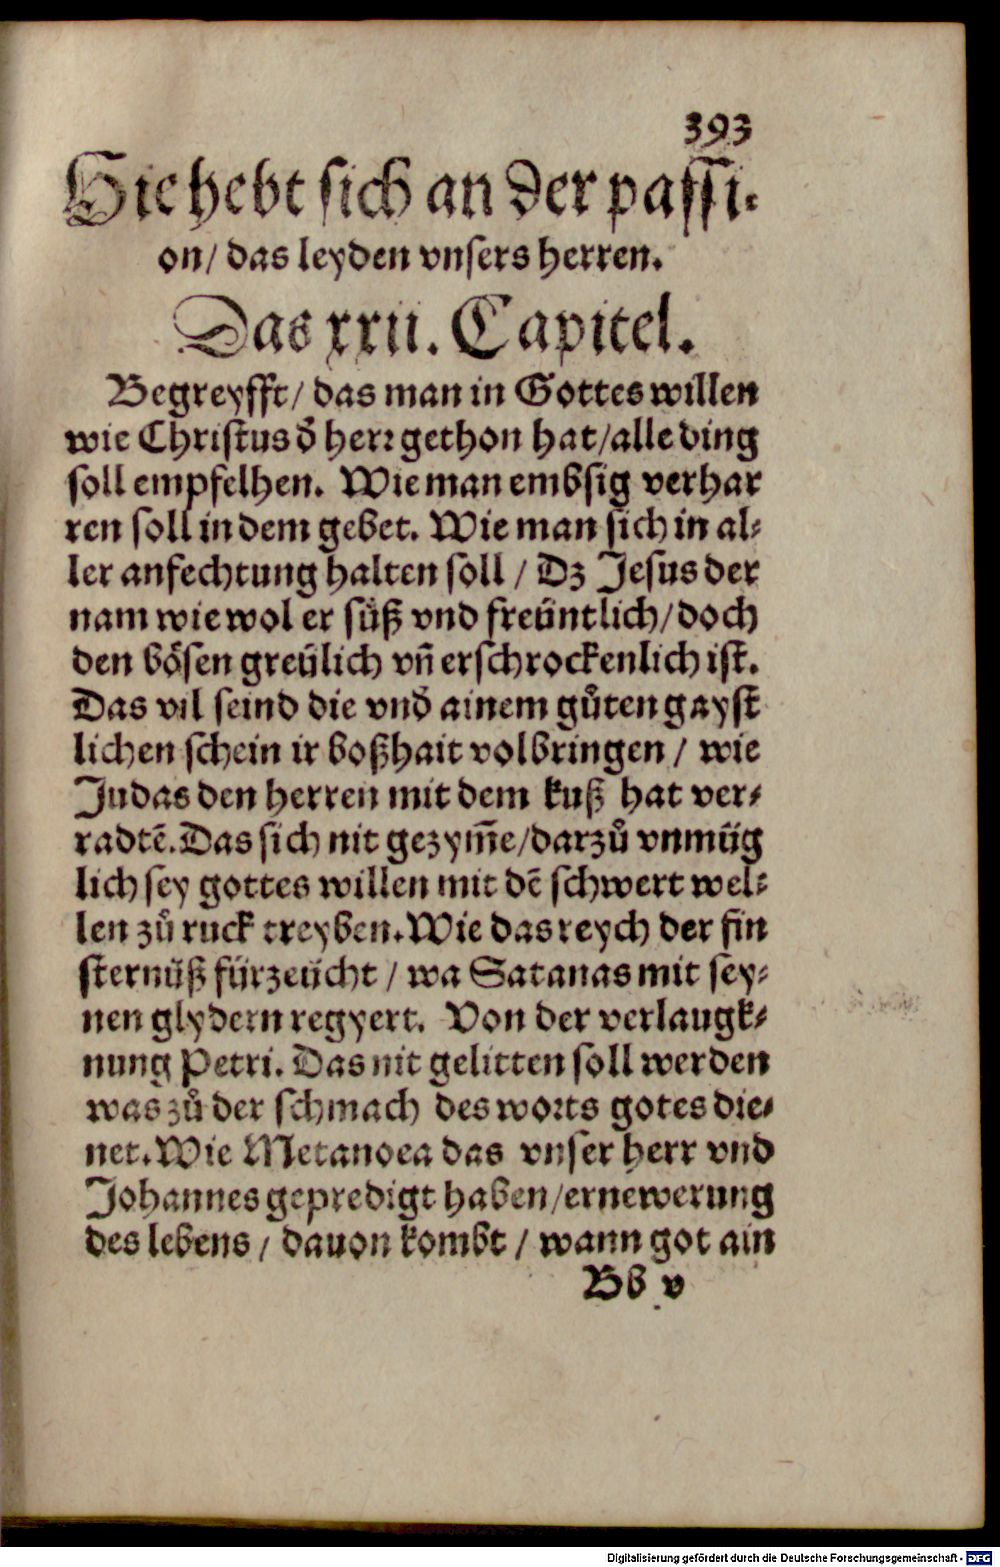 393
Hie hebt sich an der passi-
on/ das leyden vnsers herren.
Das xxii. Capitel.
Begreyfft/ das man in Gottes willen
wie Christus d̕ herr gethon hat/alle ding
soll empfelhen. Wie man embsig verhar
ren soll in dem gebet. Wie man sich in al-
ler anfechtung halten soll / Dz Jesus der
nam wie wol er süß vnd freüntlich/doch
den bösen greülich vñ erschrockenlich ist.
Das vil seind die vnd̕ ainem gůten gayst
lichen schein ir boßhait volbringen / wie
Judas den herren mit dem kuß hat ver-
radtẽ. Das sich nit gezym̃e/darzů vnmüg
lich sey gottes willen mit dẽ schwert wel-
len zů ruck treyben. Wie das reych der fin
sternüß fürzeücht / wa Satanas mit sey-
nen glydern regyert. Von der verlaugk-
nung Petri. Das nit gelitten soll werden
was zů der schmach des worts gotes die-
net. Wie Metanoea das vnser herr vnd
Johannes gepredigt haben/ernewerung
des lebens / dauon kombt / wann got ain
Bb v
Digitalisierung gefördert durch die Deutsche Forschungsgemeinschaft - DFG